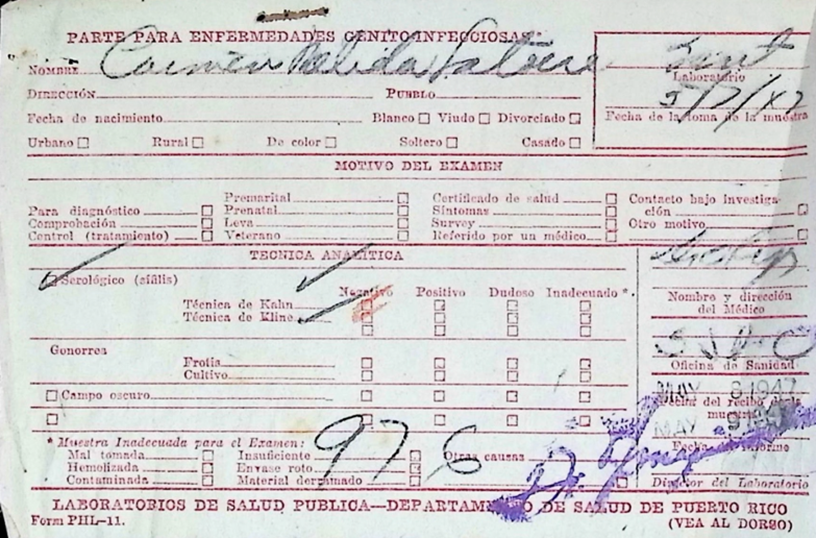 PARTE PARA ENFERMEDADES GENITOINFECCIOSAS
Sant
Laboratorio
NOMBRE Carmen
DIRECCIÓN PUEBLO
5/7/47
Fecha de la toma de la muestra
Fecha de nacimiento Blanco Viudo Divorciado
Urbano Rural De color Soltero Casado
MOTIVO DEL EXAMEN
Para diagnóstico Premarital Certificado de salud Contacto bajo investiga-
ción
Comprobación Prenatal Síntomas Otro motivo
Control (tratamiento) Leva Survey
Veterano Referido por un médico
TECNICA ANALÍTICA
Serológico (sífilis)
Negativo Positivo Dudoso Inadecuado *
Técnica de Kahn
Técnica de Kline
Nombre y dirección
del Médico
Gonorrea
Frotis
Cultivo
Oficina de Sanidad
Campo oscuro
MAY 8 1947
Fecha del recibo de la
muestra
MAY 9 1947
Fecha del informe
* Muestra Inadecuada para el Examen:
976
Mal tomada Insuficiente Otras causas
Hemolizada Envase roto
Contaminada Material derramado
Director del Laboratorio
LABORATORIOS DE SALUD PUBLICA—DEPARTAMENTO DE SALUD DE PUERTO RICO
Form PHL-11. (VEA AL DORSO)